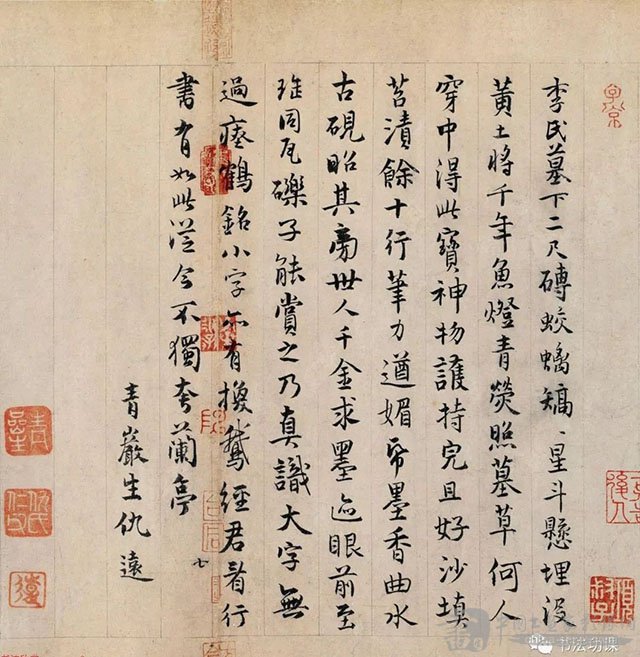 李氏墓下二尺磚蛟螭矯〻星斗懸埋沒
黃土將千年魚燈青熒照墓草何人
穿中得此寶神物護持完且好沙填
苔漬餘十行筆力遒媚帋墨香曲水
古硯昭其旁世人千金求墨迹眼前至
珎同瓦礫子能賞之乃真識大字無
過瘞鶴銘小字亦有換鵝經君看行
書有如此從今不獨夸蘭亭
七
青巖生仇遠
仇氏仁父
遠
书法功课